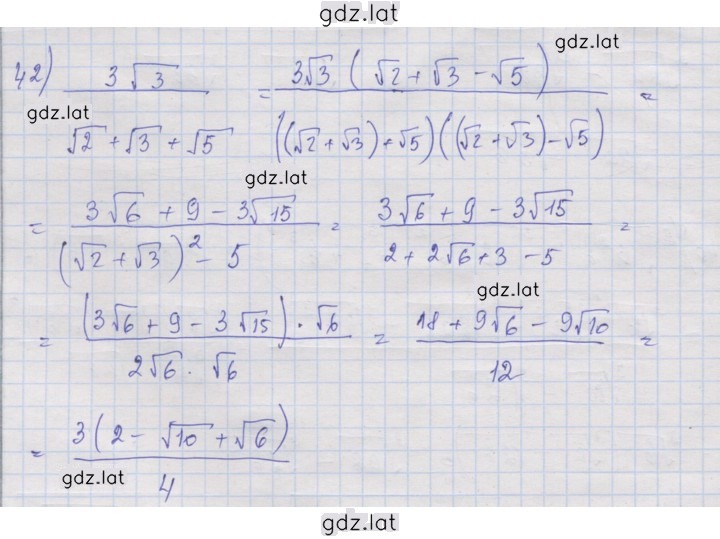 gdz.lat
42) 3√3 / (√2 + √3 + √5) = 3√3 (√2 + √3 − √5) / ((√2 + √3) + √5)((√2 + √3) − √5) =
gdz.lat
gdz.lat
gdz.lat
= (3√6 + 9 − 3√15) / ((√2 + √3)² − 5) = (3√6 + 9 − 3√15) / (2 + 2√6 + 3 − 5) =
gdz.lat
= (3√6 + 9 − 3√15) · √6 / (2√6 · √6) = (18 + 9√6 − 9√10) / 12 =
= 3(2 − √10 + √6) / 4
gdz.lat
gdz.lat